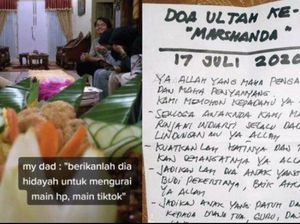 my dad : "berikanlah dia
hidayah untuk mengurai
main hp, main tiktok"
DOA ULTAH KE-
"MARSHANDA"
17 JULI 202
YA ALLAH YANG MAHA PENGA
DAN MAHA PENYAYANG.
KAMI MEMOHON KEPADAMU YA
SEMOGA ANAKNDA KAMI MA
RINJANI INDIARTI SELALU DA
LINDUNGAN MU YA ALLAH
KUATKAN LAH HATINYA DAN T
KAN SEMANGATNYA YA ALLAH
JADIKAN LAH DIA ANAK YANG
BUDI PEKERTINYA, BAIK AKH
YA ALLAH
JADIKAN DIA ANAK YANG PATUH DA
KEPADA O TUA, GURU, DA